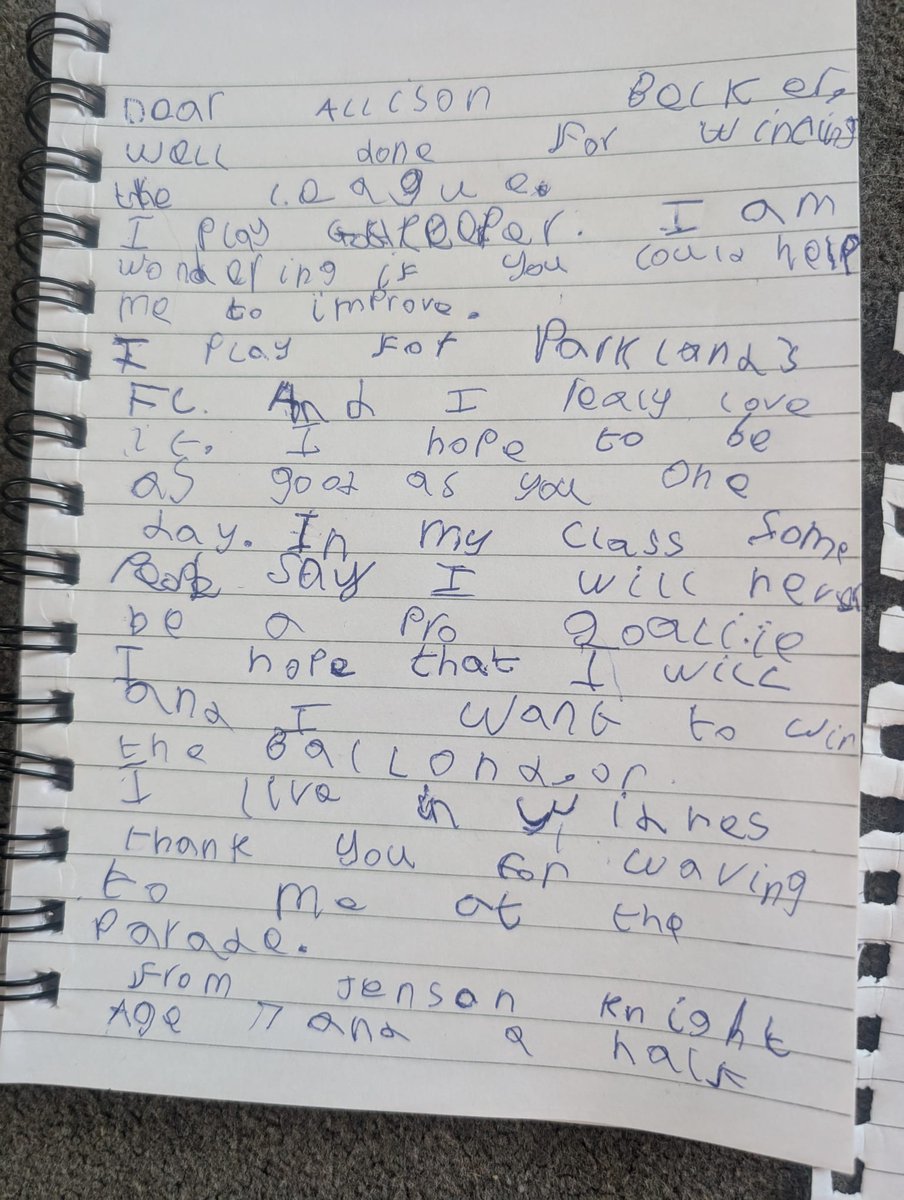 Dear ALLISON Becker,
well done for winding
the league.
I play GoalKeeper. I am
wondering if you could help
me to improve.
I play for Parklands
FC. And I realy love
it. I hope to be
as good as you one
day. In my class some
say I will never
be a pro goalie
I hope that I will
and I want to win
the Ballond,or.
I live in Widnes
thank you for waving
to me at the
Parade.
from Jenson Knight
Age 7 and a half